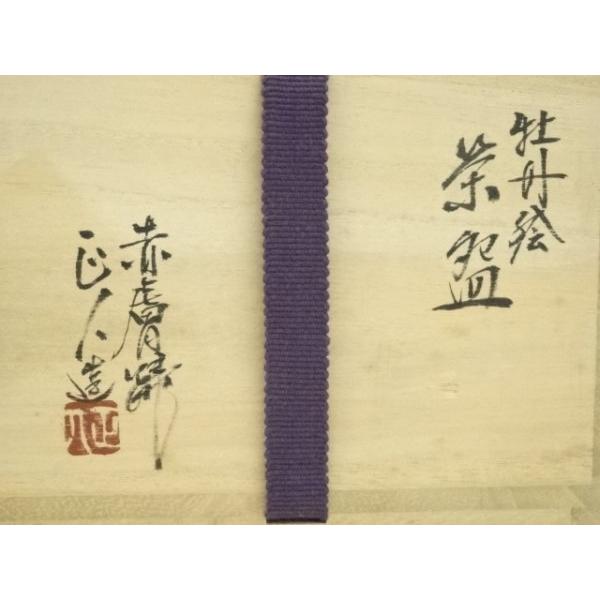 牡丹絵
茶盌
赤膚山
正人造